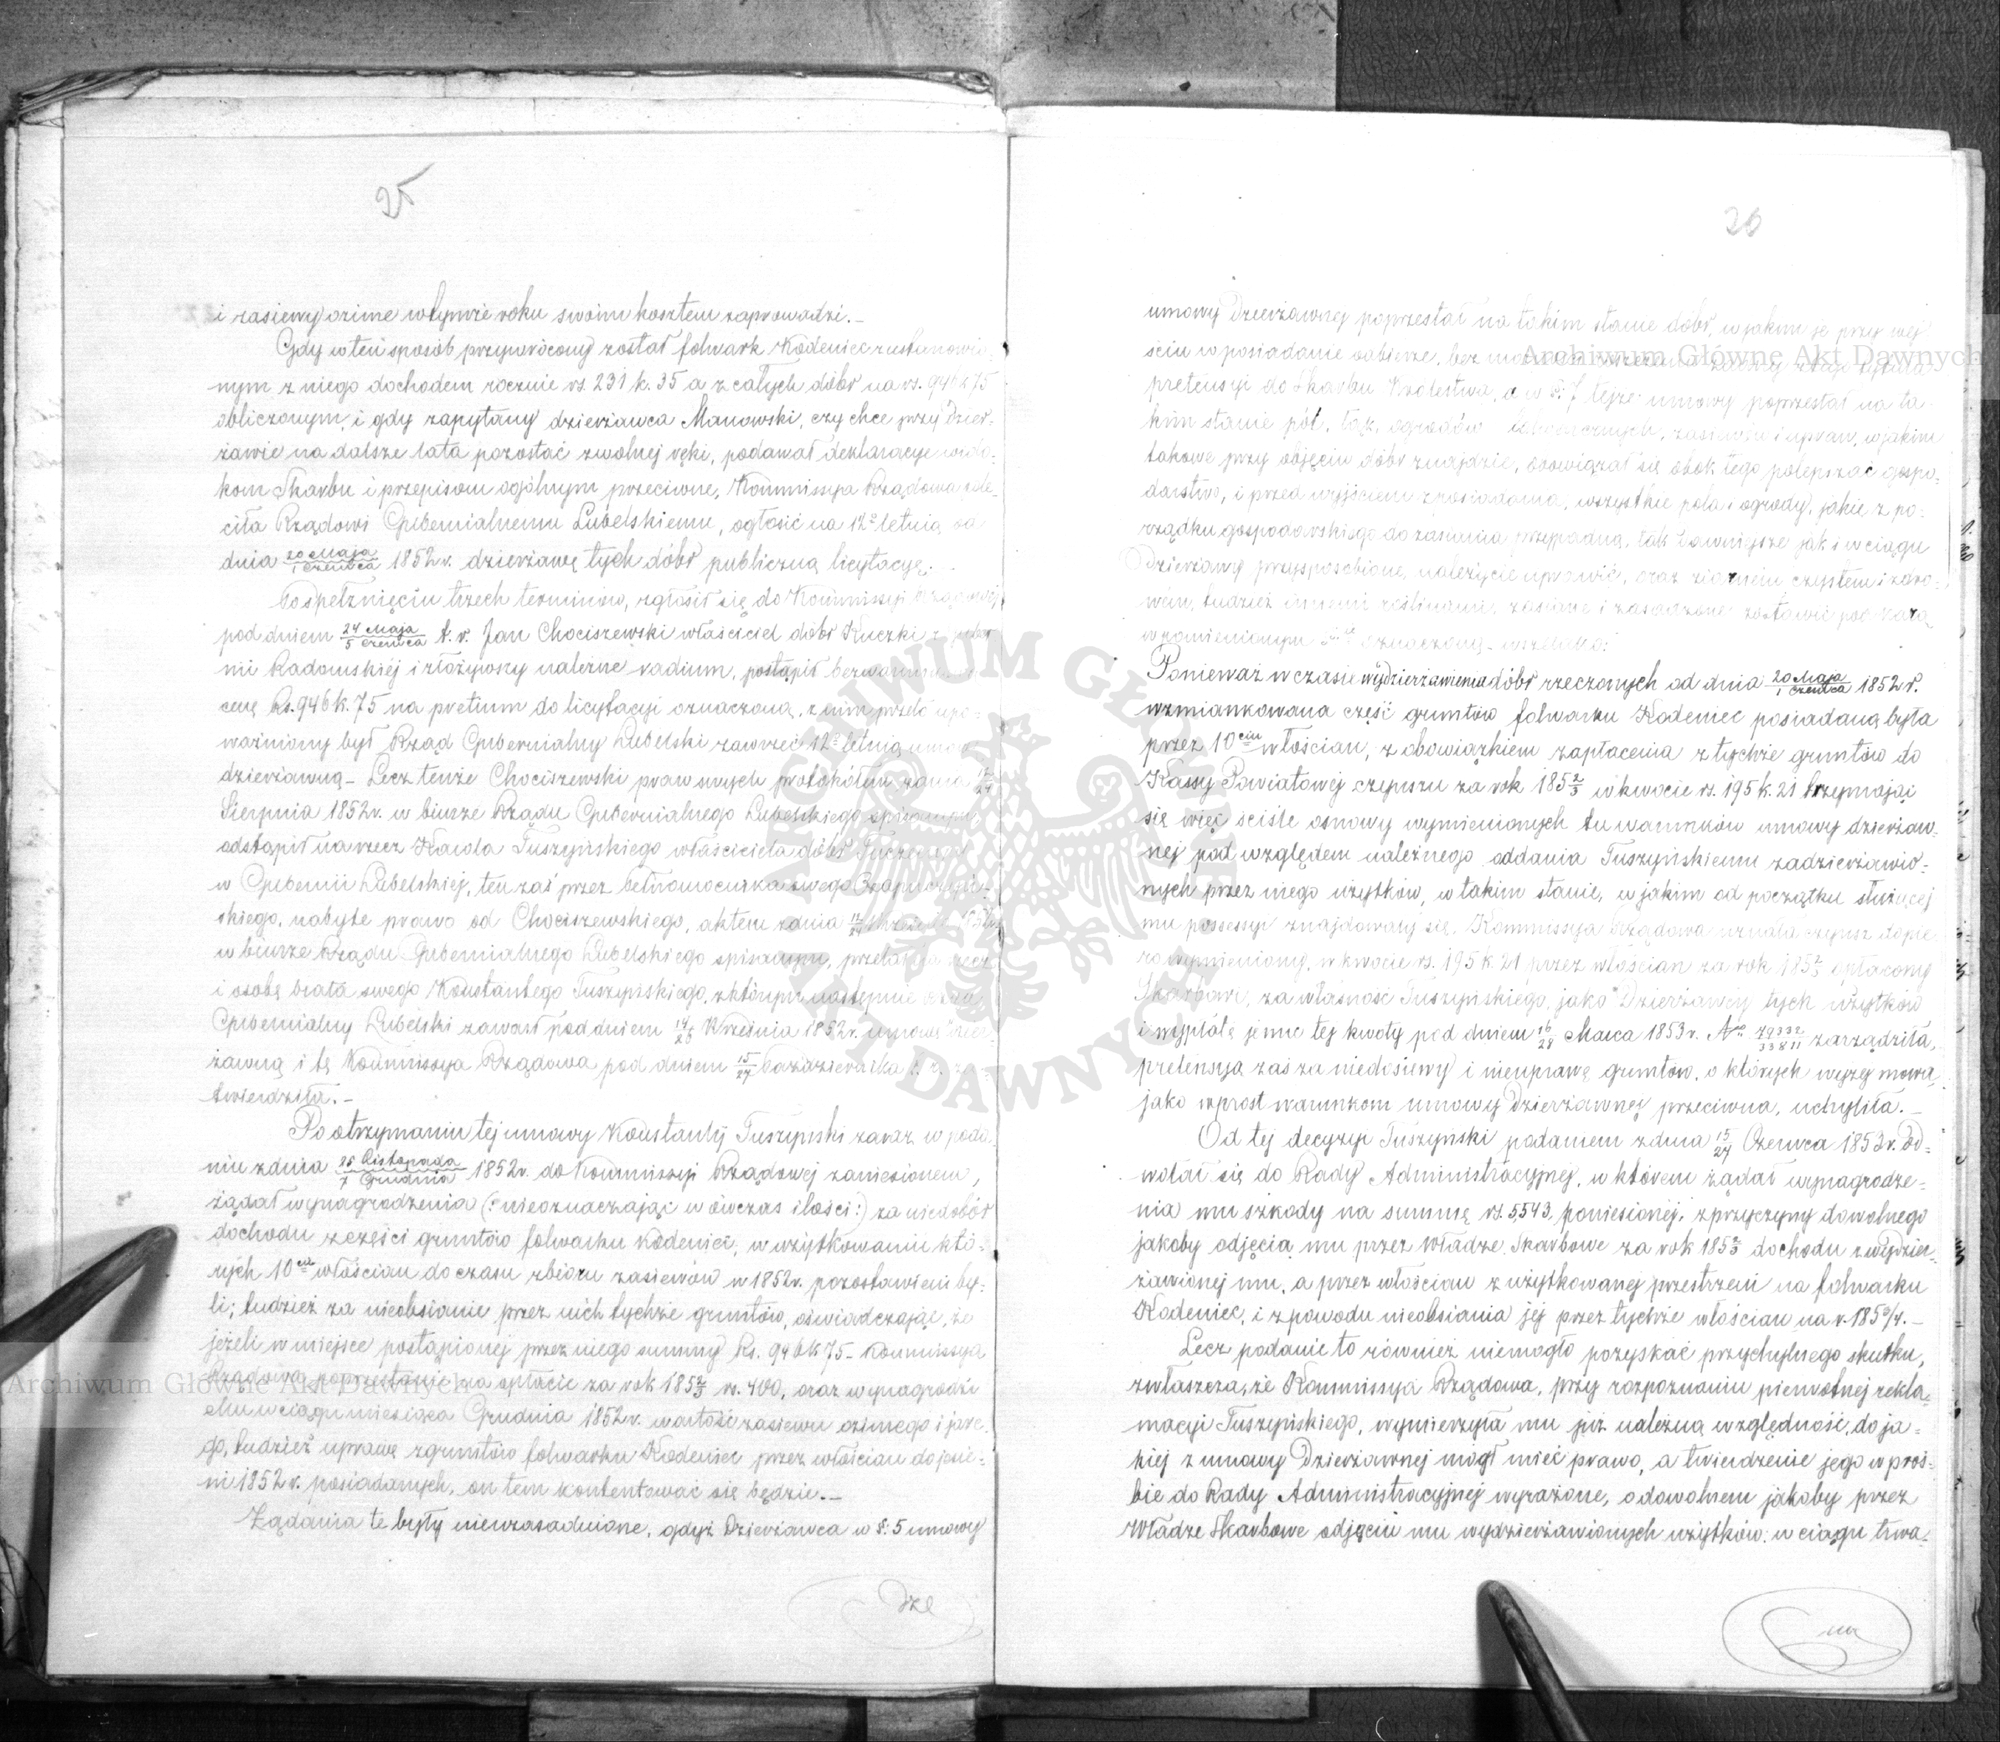 25
i zasiewy ozime w tymże roku swoim kosztem zaprowadzi. –
Gdy w ten sposób przywrócony został folwark Kodeniec z ustanowio-
nym z niego dochodem rocznie rs. 231 k. 35 a z całych dóbr na rs. 946 k 75
obliczonym, i gdy zapytany dzierżawca Manowski, czy chce przy Dzier-
żawie na dalsze lata pozostać z wolnej ręki, podawał deklaracye wido-
kom Skarbu i przepisom ogólnym przeciwne, Kommissya Rządowa pole-
ciła Rządowi Gubernialnemu Lubelskiemu, ogłosić na 12o letnią od
dnia 20 Maja / 1 Czerwca 1852 r. dzierżawę tych dóbr publiczną licytacyę. –
Po spełznięciu trzech terminów, zgłosił się do Kommissyi Rządowej
pod dniem 24 Maja / 5 Czerwca t. r. Jan Chociszewski właściciel dóbr Kuczki z Guber
nii Radomskiéj i złożywszy należne vadium, postąpił bezwarunkowo
cenę Rs. 946 k. 75 na pretium do licytacyi oznaczoną, z nim przeto upo-
ważniony był Rząd Gubernialny Lubelski zawrzeć 12o letnią umowę
dzierżawną – Lecz tenże Chociszewski praw swych protokółem z dnia 12/24
Sierpnia 1852 r. w biurze Rządu Gubernialnego Lubelskiego spisanym
odstąpił na rzecz Karola Tuszyńskiego właściciela dóbr
w Gubernii Lubelskiej, ten zaś przez pełnomocnika swego
skiego, nabyte prawo od Chociszewskiego, aktem z dnia 12/24 Września 1852 r.
w biurze Rządu Gubernialnego Lubelskiego spisanym, przelał na rzecz
i osobę brata swego Konstantego Tuszyńskiego, z którym następnie Rząd
Gubernialny Lubelski zawarł pod dniem 14/26 Września 1852 r. umowę Dzier-
żawną i tę Kommissya Rządowa pod dniem 15/27 Października t. r. za-
twierdziła. –
Po otrzymaniu tej umowy Konstanty Tuszyński zaraz w poda-
niu z dnia 25 Listopada / 7 Grudnia 1852 r. do Kommissyi Rządowej zaniesionem,
żądał wynagrodzenia (: nieoznaczając w ówczas ilości :) za niedobór
dochodu z części gruntów folwarku Kodeniec, w użytkowaniu któ-
rych 10ciu włościan do czasu zbioru zasiewów w 1852 r. pozostawieni by-
li; tudzież za nieobsianie przez nich tychże gruntów, oświadczając, że
jeżeli w miejsce postąpionej przez niego summy Rs. 946 k 75 – Kommissya
Rządowa poprzestanie na opłacie za rok 1852/3 rs. 400, oraz wynagrodzi
mu w ciągu miesiąca Grudnia 1852 r. wartość zasiewu ozimego i jare-
go, tudzież uprawę z gruntów folwarku Kodeniec przez włościan do jesie-
ni 1852 r. posiadanych, on tem kontentować się będzie. –
Żądania te były nieuzasadnione, gdyż Dzierżawca w §: 5 umowy
26
umowy Dzierżawnej poprzestał na takim stanie dóbr, w jakim je przy wej-
ściu w posiadanie odbierze, bez
pretensyi do Skarbu Królestwa, a w §: 7 tejże umowy poprzestał na ta-
kim stanie pól, łąk, ogrodów zasiewów i upraw, w jakim
takowe przy objęciu dóbr znajdzie, obowiązał się obok tego polepszać gospo-
darstwo, i przed wyjściem z posiadania, wszystkie pola i ogrody, jakie z po-
rządku gospodarskiego do zasiania przypadną, tak dawniejsze jak i w ciągu
Dzierżawy przysposobione, należycie uprawić, oraz ziarnem czystem i zdro-
wem, tudzież innemi roślinami, zasiane i zasadzone zostawić pod karą
w pomienionym oznaczoną
Ponieważ w czasie wydzierżawienia dóbr rzeczonych od dnia 20 Maja / 1 Czerwca 1852 r.
wzmiankowana część gruntów folwarku Kodeniec posiadaną była
przez 10ciu włościan, z obowiązkiem zapłacenia z tychże gruntów do
Kassy Powiatowej czynszu za rok 1852/3 w kwocie rs. 195 k. 21 trzymając
się więc ściśle osnowy wymienionych tu warunków umowy dzierżaw-
nej pod względem należnego oddania Tuszyńskiemu zadzierżawio-
nych przez niego użytków, w takim stanie, w jakim od początku służącej
mu possessyi znajdowały się, Kommissya Rządowa uznała czynsz dopie-
ro wymieniony, w kwocie rs. 195 k. 21 przez włościan za rok 1852/3 opłacony
Skarbowi, za własność Tuszyńskiego, jako Dzierżawcy tych użytków
i wypłatę jemu tej kwoty pod dniem 16/28 Marca 1853 r. No 79332/33811 zarządziła,
pretensyą zaś za niedosiewy i nieuprawę gruntów, o których wyżej mowa,
jako wprost warunkom umowy Dzierżawnej przeciwną, uchyliła. –
Od tej decyzyi Tuszyński podaniem z dnia 15/27 Czerwca 1853 r. od-
wołał się do Rady Administracyjnej, w którem żądał wynagrodze-
nia mu szkody na summę rs. 5,543, poniesionéj, z przyczyny dowolnego
jakoby odjęcia mu przez Władze Skarbowe za rok 1852/3 dochodu z wydzier-
żawionej mu, a przez włościan z użytkowanej przestrzeni na folwarku
Kodeniec, i z powodu nieobsiania jej przez tychże włościan na r. 1853/4. –
Lecz podanie to również niemogło pozyskać przychylnego skutku,
zwłaszcza, że Kommissya Rządowa, przy rozpoznaniu pierwotnej rekla-
macyi Tuszyńskiego, wymierzyła mu już należną względność, do ja-
kiej z umowy Dzierżawnej mógł mieć prawo, a twierdzenie jego w proś-
bie do Rady Administracyjnej wyrażone, o dowolnem jakoby przez
Władze Skarbowe odjęciu mu wydzierżawionych użytków: w ciągu trwa-
Archiwum Główne Akt Dawnych
Archiwum Główne Akt Dawnych
ARCHIWUM GŁÓWNE
AKT DAWNYCH